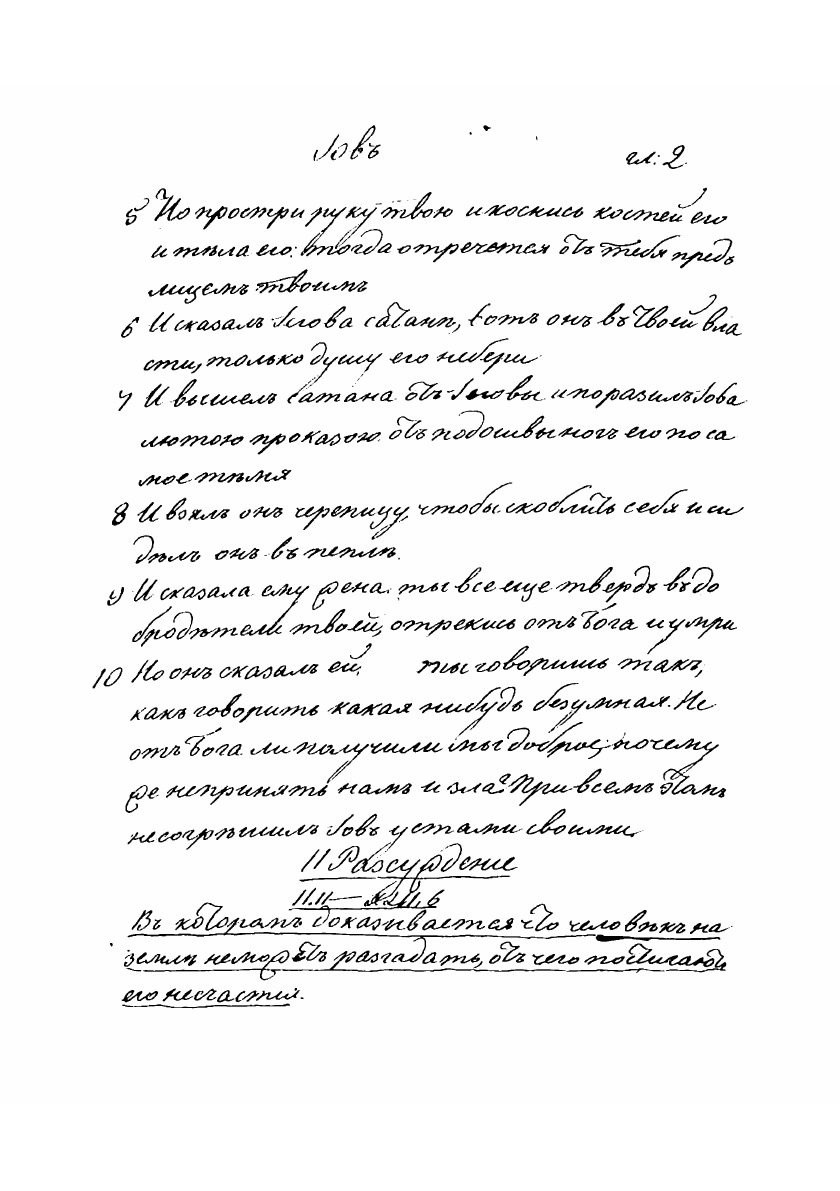 Іовъ гл: 2
5 Но простри руку твою и коснись костей его
и тѣла его: тогда отречется отъ тебя предъ
лицемъ твоимъ
6 И сказалъ Іегова сатанѣ, вотъ онъ въ твоей вла
сти, только душу его небери
7 И вышелъ сатана отъ Іеговы и поразилъ Іова
лютою проказою отъ подошвы ногъ его по са
мое тѣмя
8 И взялъ онъ черепицу, чтобы скоблить себя и си
дѣлъ онъ въ пеплѣ.
9 И сказала ему жена. ты все еще твердъ въ до
бродѣтели твоей, отрекись отъ Бога и умри
10 Но онъ сказалъ ей, ты говоришь такъ,
какъ говорить какая нибудь безумная. Не
отъ Бога ли получили мы доброе, почему
же непринять намъ и зла? При всемъ этомъ
несогрѣшилъ Іовъ устами своими.
II Разсужденіе
II.11— XLII,6
Въ которомъ доказывается что человѣкъ на
землѣ неможетъ разгадать, отъ чего постигаютъ
его несчастія.